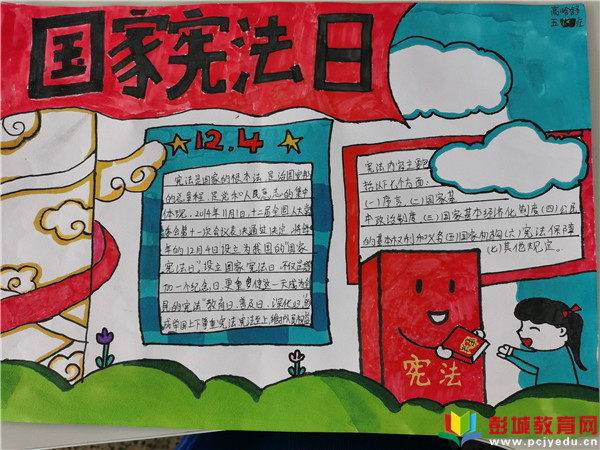 国家宪法日
12.4
宪法是国家的根本法,是治国安邦
的总章程,是党和人民意志的集中
体现。2014年11月1日,十二届全国人大常
委会第十一次会议表决通过决定,将每
年的12月4日设立为我国的"国家
宪法日"。设立国家宪法日,不仅是增
加一个纪念日,更重要使这一天成为全
民的宪法"教育日、普及日、深化日",形
宪法内容主要
括以下七个方面:
(一)序言,(二)国家基
本政治制度,(三)国家基本经济化制度(四)公民
的基本权利和义务(五)国家机构(六)宪法保障
(七)其他规定。
宪法
彭城教育网
www.pcjyedu.cn